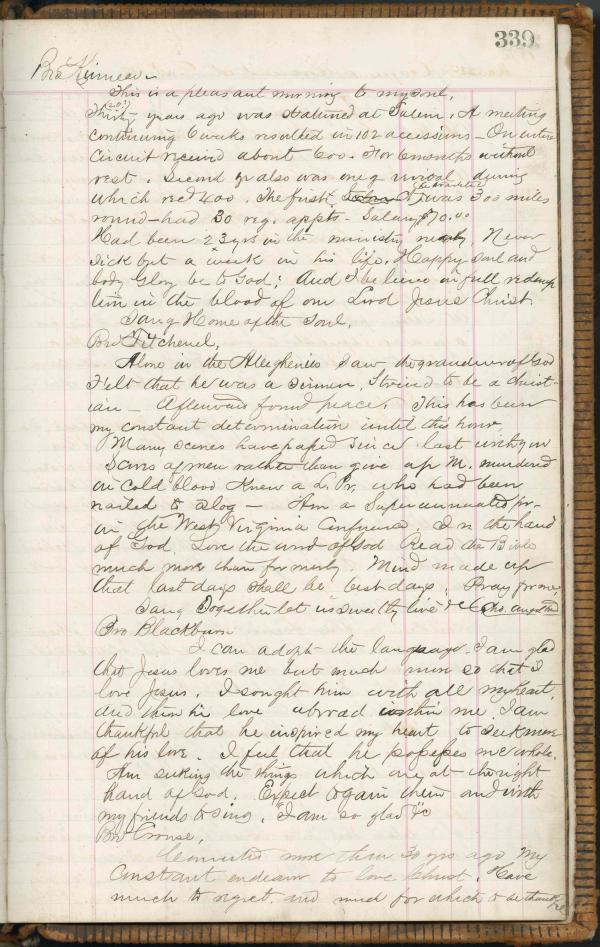 339
Bro Kinnear
This is a pleasant morning to my soul,
(20?)
Thirty years ago was stationed at Salem. A meeting
continuing 6 weeks resulted in 102 accessions — On entire
Circuit received about 600. For 6 months without
rest. Second yr also was one of revival during
which recd 400. The first was 300 miles
round — had 30 reg. appts — Salary $70.00
Had been 23 yrs in the ministry nearly. Never
sick but a week in his life. Happy soul and
body Glory be to God; And I believe in full redemp
tion in the blood of our Lord Jesus Christ
Sang Home of the Soul,
Bro Fitchenel,
Alone in the Alleghenies I saw the grandeur of God
Felt that he was a sinner, Strived to be a Christ-
ian — Afterwards found peace. This has been
my constant determination until this hour
Many scenes have passed since last with you
Scores of men rather than give up M. murdered
in cold blood Knew a L. Pr. who had been
nailed to a log — Am a Superannuated pr-
in the West Virginia Conference. In the hand
of God. Love the word of God Read the Bible
much more than formerly. Mind made up
that last days shall be best days; Pray for me,
Sang Together let us sweetly live &c
Bro Blackburn
I can adopt the language. I am glad
that Jesus loves me but much more so that I
love Jesus. I sought him with all my heart,
and then his love abroad within me. I am
thankful that he inspired my heart to seek more
of his love. I feel that he possesses me whole.
Am seeking the things which are at the right
hand of God. Expect to gain them and with
my friends to sing. "I am so glad" &c
Bro Crouse,
Converted more than 30 yrs ago My
Constant endeavor to love Christ. Have
much to regret. and much for which to be thank